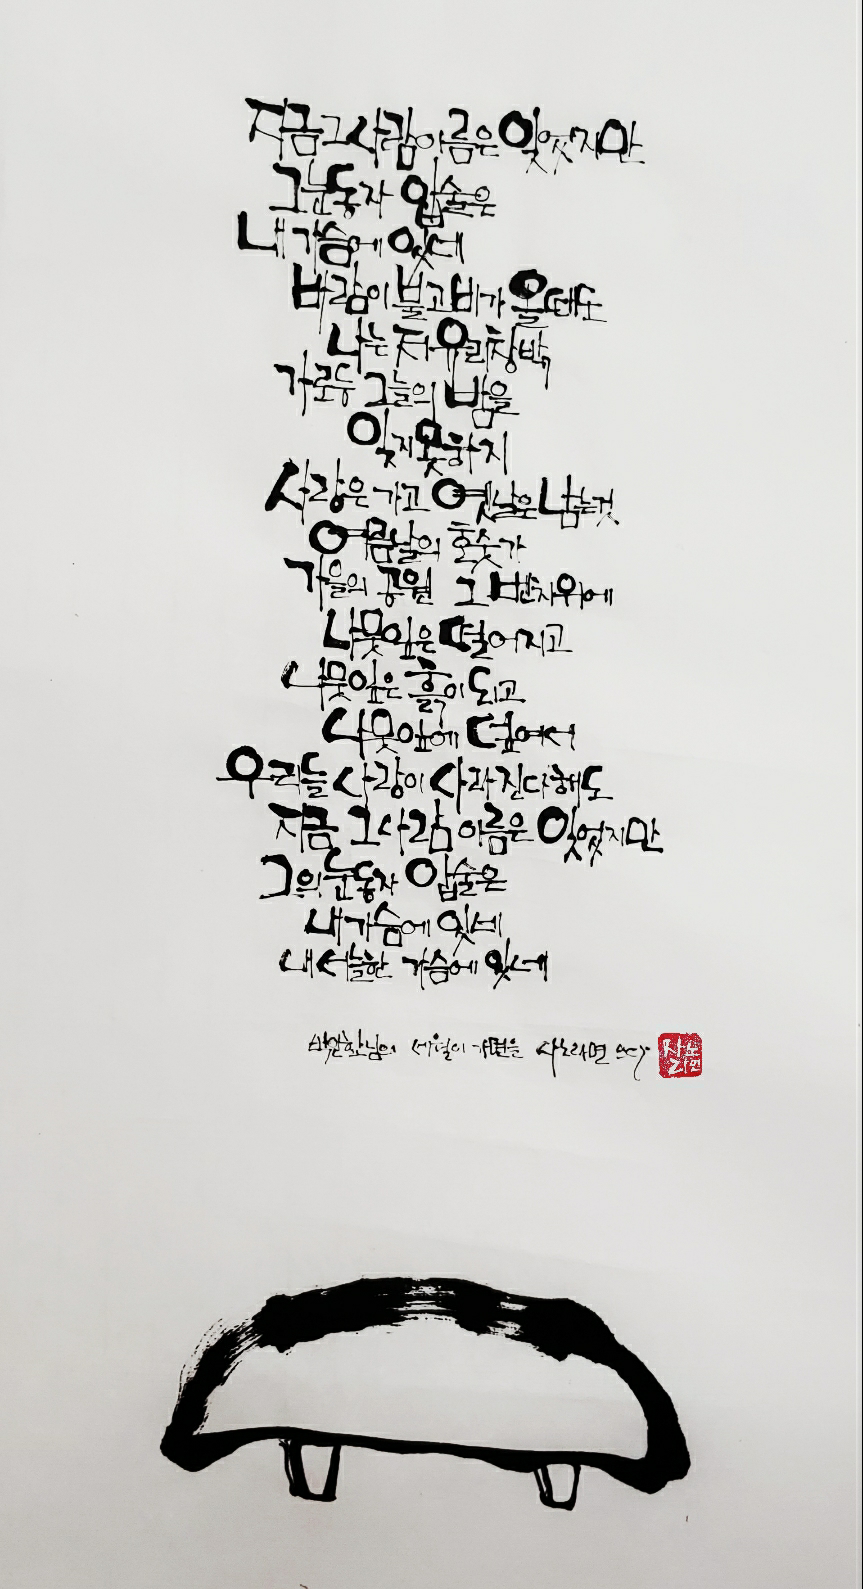 지금 그 사람 이름은 잊었지만
그 눈동자 입술은
내 가슴에 있네
바람이 불고 비가 올때도
나는 저 유리창 밖
가로등 그늘의 밤을
잊지 못하지
사랑은 가고 옛날은 남는 것
여름날의 호숫가
가을의 공원 그 벤치위에
나뭇잎은 떨어지고
나뭇잎은 흙이 되고
나뭇잎에 덮여서
우리들 사랑이 사라진다 해도
지금 그 사람 이름은 잊었지만
그의 눈동자 입술은
내 가슴에 있네
내 서늘한 가슴에 있네
박인환님의 세월이 가면을 사노라면 쓰다